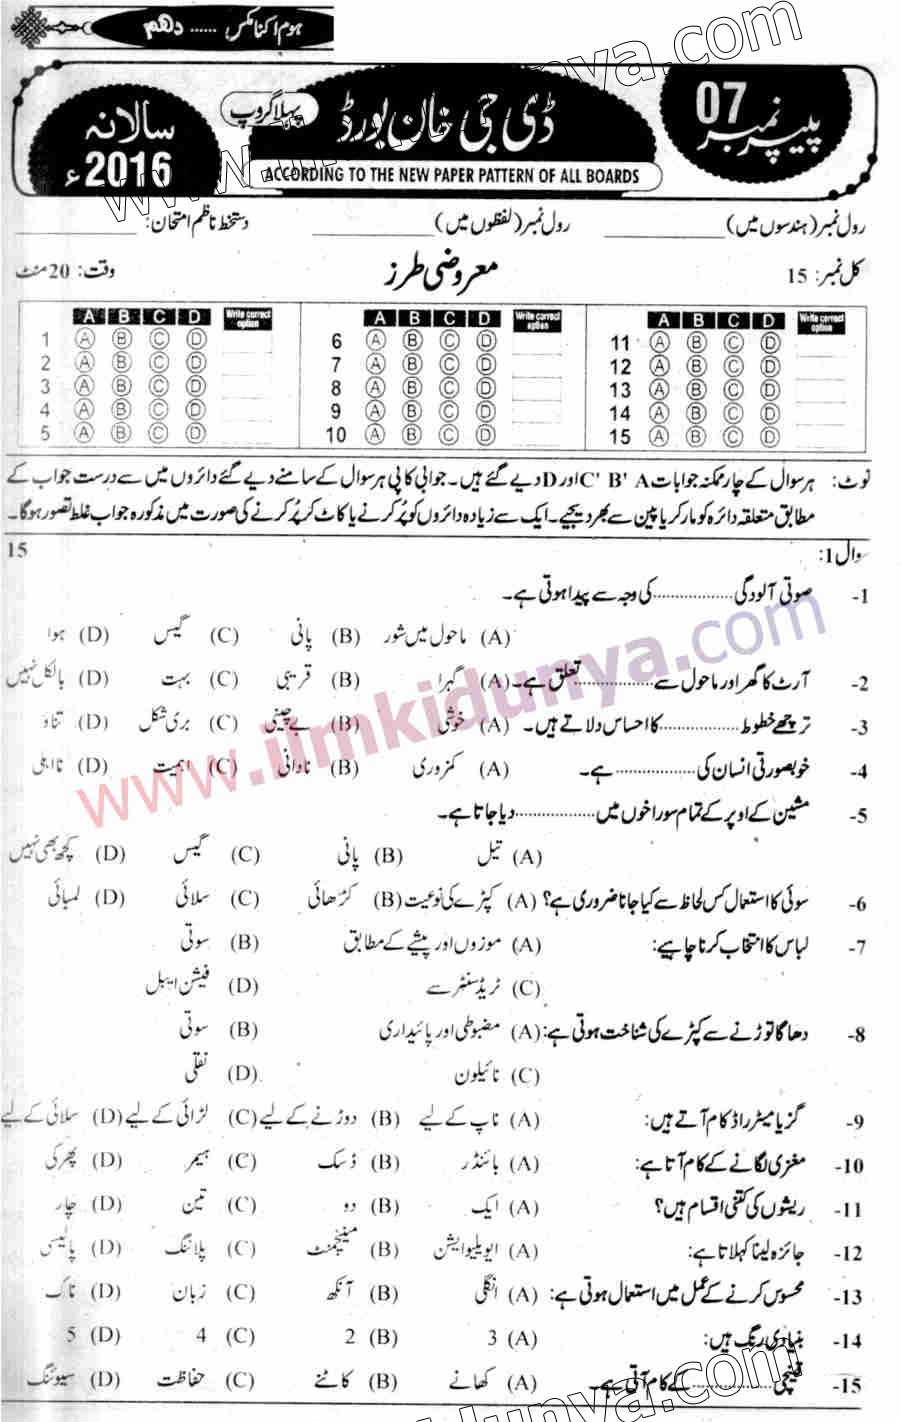 ہوم اکنامکس ...... دہم
پیپر نمبر 07
ڈی جی خان بورڈ
پہلا گروپ
سالانہ 2016ء
ACCORDING TO THE NEW PAPER PATTERN OF ALL BOARDS
رول نمبر (ہندسوں میں) ____________ رول نمبر (لفظوں میں) ____________ دستخط ناظم امتحان: ____________
کل نمبر: 15 معروضی طرز وقت: 20 منٹ
A B C D Write correct option A B C D Write correct option A B C D Write correct option
1 A B C D 6 A B C D 11 A B C D
2 A B C D 7 A B C D 12 A B C D
3 A B C D 8 A B C D 13 A B C D
4 A B C D 9 A B C D 14 A B C D
5 A B C D 10 A B C D 15 A B C D
نوٹ: ہر سوال کے چار ممکنہ جوابات A 'B 'C اور D دیے گئے ہیں۔ جوابی کاپی ہر سوال کے سامنے دیے گئے دائروں میں سے درست جواب کے
مطابق متعلقہ دائرہ کو مارکر یا پین سے بھر دیجیے۔ ایک سے زیادہ دائروں کو پُر کرنے یا کاٹ کر پُر کرنے کی صورت میں مذکورہ جواب غلط تصور ہوگا۔
سوال 1: 15
1- صوتی آلودگی .................. کی وجہ سے پیدا ہوتی ہے۔
(A) ماحول میں شور (B) پانی (C) گیس (D) ہوا
2- آرٹ کا گھر اور ماحول سے .................. تعلق ہے۔ (A) گہرا (B) قریبی (C) بہت (D) بالکل نہیں
3- ترچھے خطوط .................. کا احساس دلاتے ہیں۔ (A) خوشی (B) بے چینی (C) بری شکل (D) تناؤ
4- خوبصورتی انسان کی .................. ہے۔ (A) کمزوری (B) نادانی (C) اہمیت (D) نااہلی
5- مشین کے اوپر کے تمام سوراخوں میں .................. دیا جاتا ہے۔
(A) تیل (B) پانی (C) گیس (D) کچھ بھی نہیں
6- سوئی کا استعمال کس لحاظ سے کیا جانا ضروری ہے؟ (A) کپڑے کی نوعیت (B) کڑھائی (C) سلائی (D) لمبائی
7- لباس کا انتخاب کرنا چاہیے: (A) موزوں اور پیشے کے مطابق (B) سوتی
(C) ٹریڈ سنٹر سے (D) فیشن ایبل
8- دھاگا توڑنے سے کپڑے کی شناخت ہوتی ہے: (A) مضبوطی اور پائیداری (B) سوتی
(C) نائیلون (D) نقلی
9- گز یا میٹر راڈ کام آتے ہیں: (A) ناپ کے لیے (B) دوڑنے کے لیے (C) لڑائی کے لیے (D) سلائی کے لیے
10- مغزی لگانے کے کام آتا ہے: (A) بائنڈر (B) ڈسک (C) ہیمر (D) پھرکی
11- ریشوں کی کتنی اقسام ہیں؟ (A) ایک (B) دو (C) تین (D) چار
12- جائزہ لینا کہلاتا ہے: (A) ایویلیوایشن (B) مینیجمنٹ (C) پلاننگ (D) پالیسی
13- محسوس کرنے کے عمل میں استعمال ہوتی ہے: (A) انگلی (B) آنکھ (C) زبان (D) ناک
14- بنیادی رنگ ہیں: (A) 3 (B) 2 (C) 4 (D) 5
15- قینچی .................. کے کام آتی ہے۔ (A) کھانے (B) کاٹنے (C) حفاظت (D) سیوئنگ
www.ilmkidunya.com